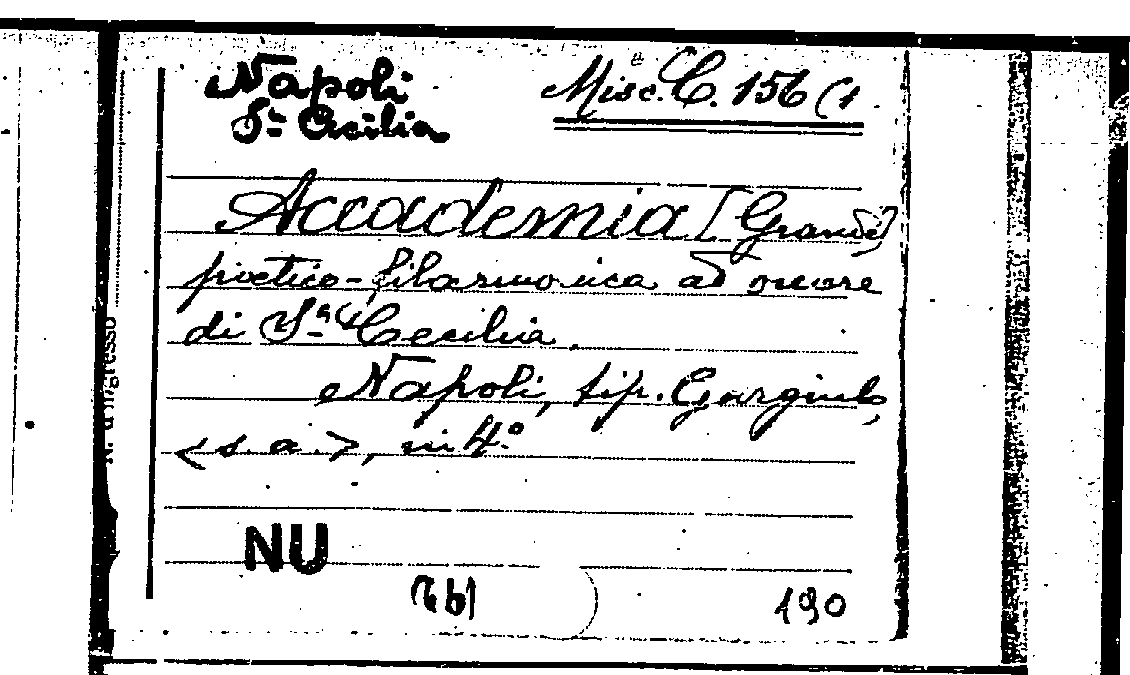 Napoli
Sta Cecilia
Misc. C. 156 (1
Accademia [Grande]
poetico-filarmonica ad onore
di Sta Cecilia.
Napoli, tip. Gargiulo,
<s. a.>, in 4.º
N. d'ingresso
NU
190